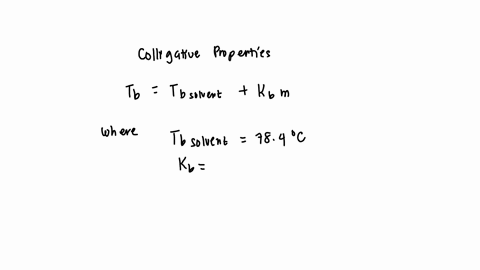 Colligative Properties
Tb = Tb solvent + Kb m
where Tb solvent = 78.4 °C
Kb =